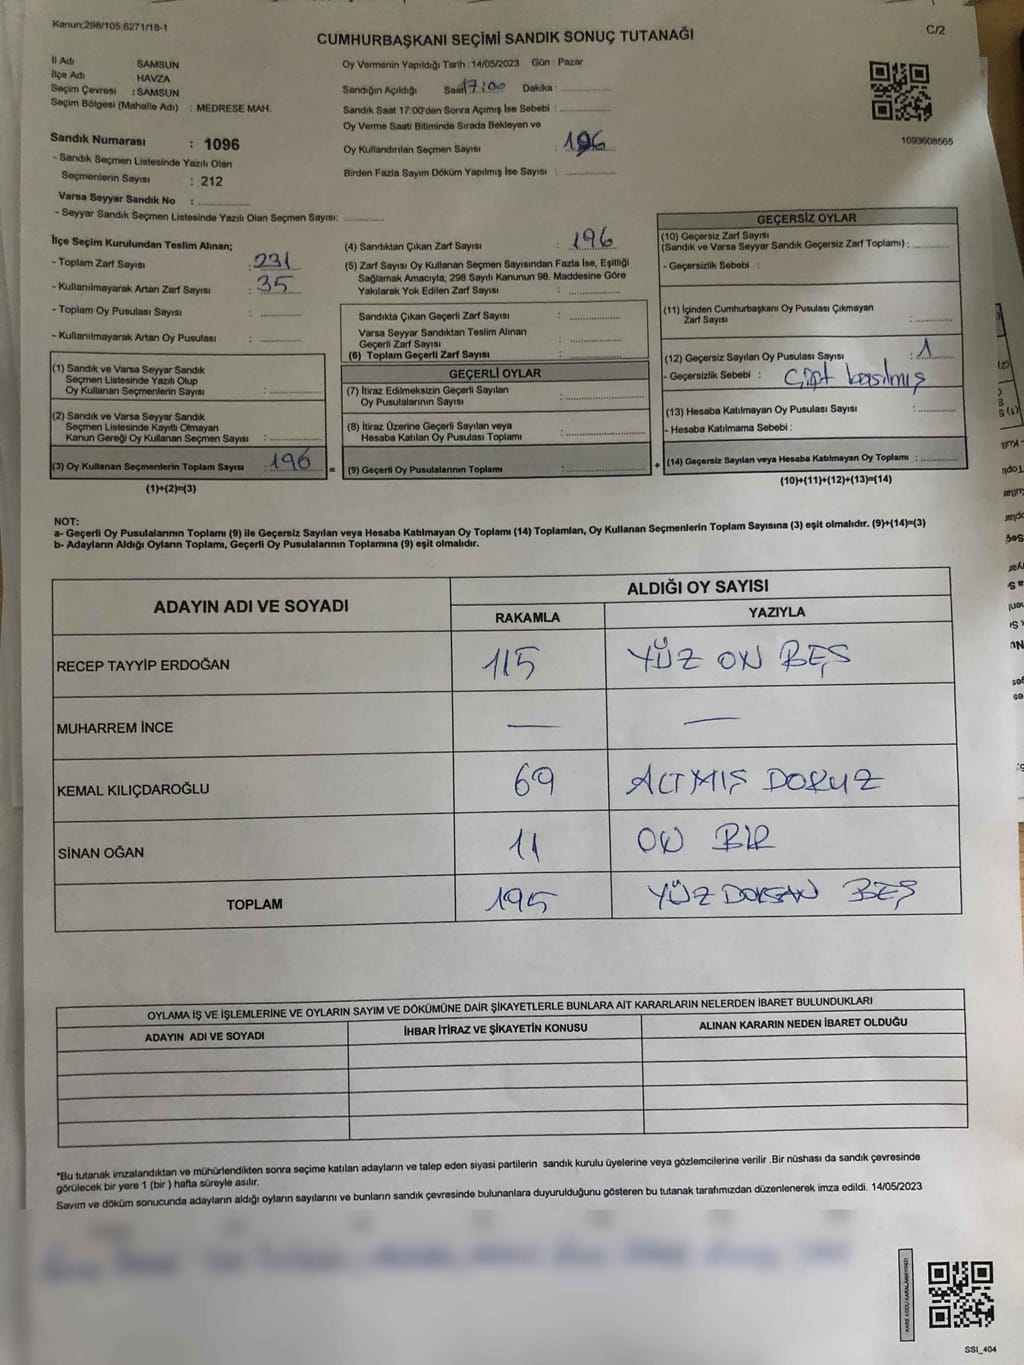 Kanun;298/105;6271/18-1
C/2
CUMHURBAŞKANI SEÇİMİ SANDIK SONUÇ TUTANAĞI
İl Adı : SAMSUN
İlçe Adı : HAVZA
Seçim Çevresi : SAMSUN
Seçim Bölgesi (Mahalle Adı) : MEDRESE MAH.
Sandık Numarası : 1096
- Sandık Seçmen Listesinde Yazılı Olan
Seçmenlerin Sayısı : 212
Varsa Seyyar Sandık No : ............
- Seyyar Sandık Seçmen Listesinde Yazılı Olan Seçmen Sayısı: ............
Oy Vermenin Yapıldığı Tarih : 14/05/2023 Gün : Pazar
Sandığın Açıldığı Saat 17:00 Dakika : ............
Sandık Saat 17:00'den Sonra Açımış İse Sebebi : ............
Oy Verme Saati Bitiminde Sırada Bekleyen ve
Oy Kullandırılan Seçmen Sayısı : 196
Birden Fazla Sayım Döküm Yapılmış İse Sayısı : ............
1093608565
İlçe Seçim Kurulundan Teslim Alınan;
- Toplam Zarf Sayısı : 231
- Kullanılmayarak Artan Zarf Sayısı : 35
- Toplam Oy Pusulası Sayısı : ............
- Kullanılmayarak Artan Oy Pusulası : ............
(1) Sandık ve Varsa Seyyar Sandık
Seçmen Listesinde Yazılı Olup
Oy Kullanan Seçmenlerin Sayısı : ............
(2) Sandık ve Varsa Seyyar Sandık
Seçmen Listesinde Kayıtlı Olmayan
Kanun Gereği Oy Kullanan Seçmen Sayısı : ............
(3) Oy Kullanan Seçmenlerin Toplam Sayısı : 196
(1)+(2)=(3)
(4) Sandıktan Çıkan Zarf Sayısı : 196
(5) Zarf Sayısı Oy Kullanan Seçmen Sayısından Fazla İse, Eşitliği
Sağlamak Amacıyla; 298 Sayılı Kanunun 98. Maddesine Göre
Yakılarak Yok Edilen Zarf Sayısı : ............
Sandıkta Çıkan Geçerli Zarf Sayısı : ............
Varsa Seyyar Sandıktan Teslim Alınan
Geçerli Zarf Sayısı : ............
(6) Toplam Geçerli Zarf Sayısı : ............
GEÇERLİ OYLAR
(7) İtiraz Edilmeksizin Geçerli Sayılan
Oy Pusulalarının Sayısı : ............
(8) İtiraz Üzerine Geçerli Sayılan veya
Hesaba Katılan Oy Pusulası Toplamı : ............
= (9) Geçerli Oy Pusulalarının Toplamı : ............
GEÇERSİZ OYLAR
(10) Geçersiz Zarf Sayısı
(Sandık ve Varsa Seyyar Sandık Geçersiz Zarf Toplamı) : ............
- Geçersizlik Sebebi :
(11) İçinden Cumhurbaşkanı Oy Pusulası Çıkmayan
Zarf Sayısı : ............
(12) Geçersiz Sayılan Oy Pusulası Sayısı : 1
- Geçersizlik Sebebi : Çift basılmış
(13) Hesaba Katılmayan Oy Pusulası Sayısı : ............
- Hesaba Katılmama Sebebi :
+ (14) Geçersiz Sayılan veya Hesaba Katılmayan Oy Toplamı : ............
(10)+(11)+(12)+(13)=(14)
NOT:
a- Geçerli Oy Pusulalarının Toplamı (9) ile Geçersiz Sayılan veya Hesaba Katılmayan Oy Toplamı (14) Toplamları, Oy Kullanan Seçmenlerin Toplam Sayısına (3) eşit olmalıdır. (9)+(14)=(3)
b- Adayların Aldığı Oyların Toplamı, Geçerli Oy Pusulalarının Toplamına (9) eşit olmalıdır.
ADAYIN ADI VE SOYADI ALDIĞI OY SAYISI
RAKAMLA YAZIYLA
RECEP TAYYİP ERDOĞAN 115 YÜZ ON BEŞ
MUHARREM İNCE — —
KEMAL KILIÇDAROĞLU 69 ALTMIŞ DOKUZ
SİNAN OĞAN 11 ON BİR
TOPLAM 195 YÜZ DOKSAN BEŞ
OYLAMA İŞ VE İŞLEMLERİNE VE OYLARIN SAYIM VE DÖKÜMÜNE DAİR ŞİKAYETLERLE BUNLARA AİT KARARLARIN NELERDEN İBARET BULUNDUKLARI
ADAYIN ADI VE SOYADI İHBAR İTİRAZ VE ŞİKAYETİN KONUSU ALINAN KARARIN NEDEN İBARET OLDUĞU
*Bu tutanak imzalandıktan ve mühürlendikten sonra seçime katılan adayların ve talep eden siyasi partilerin sandık kurulu üyelerine veya gözlemcilerine verilir .Bir nüshası da sandık çevresinde
görülecek bir yere 1 (bir ) hafta süreyle asılır.
Sayım ve döküm sonucunda adayların aldığı oyların sayılarını ve bunların sandık çevresinde bulunanlara duyurulduğunu gösteren bu tutanak tarafımızdan düzenlenerek imza edildi. 14/05/2023
KARE KODU KARALAMAYINIZ!
SSI_404